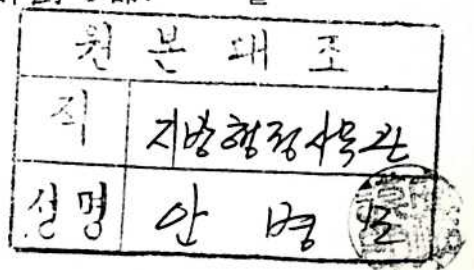 원본대조
직 지방행정사무관
성명 안병